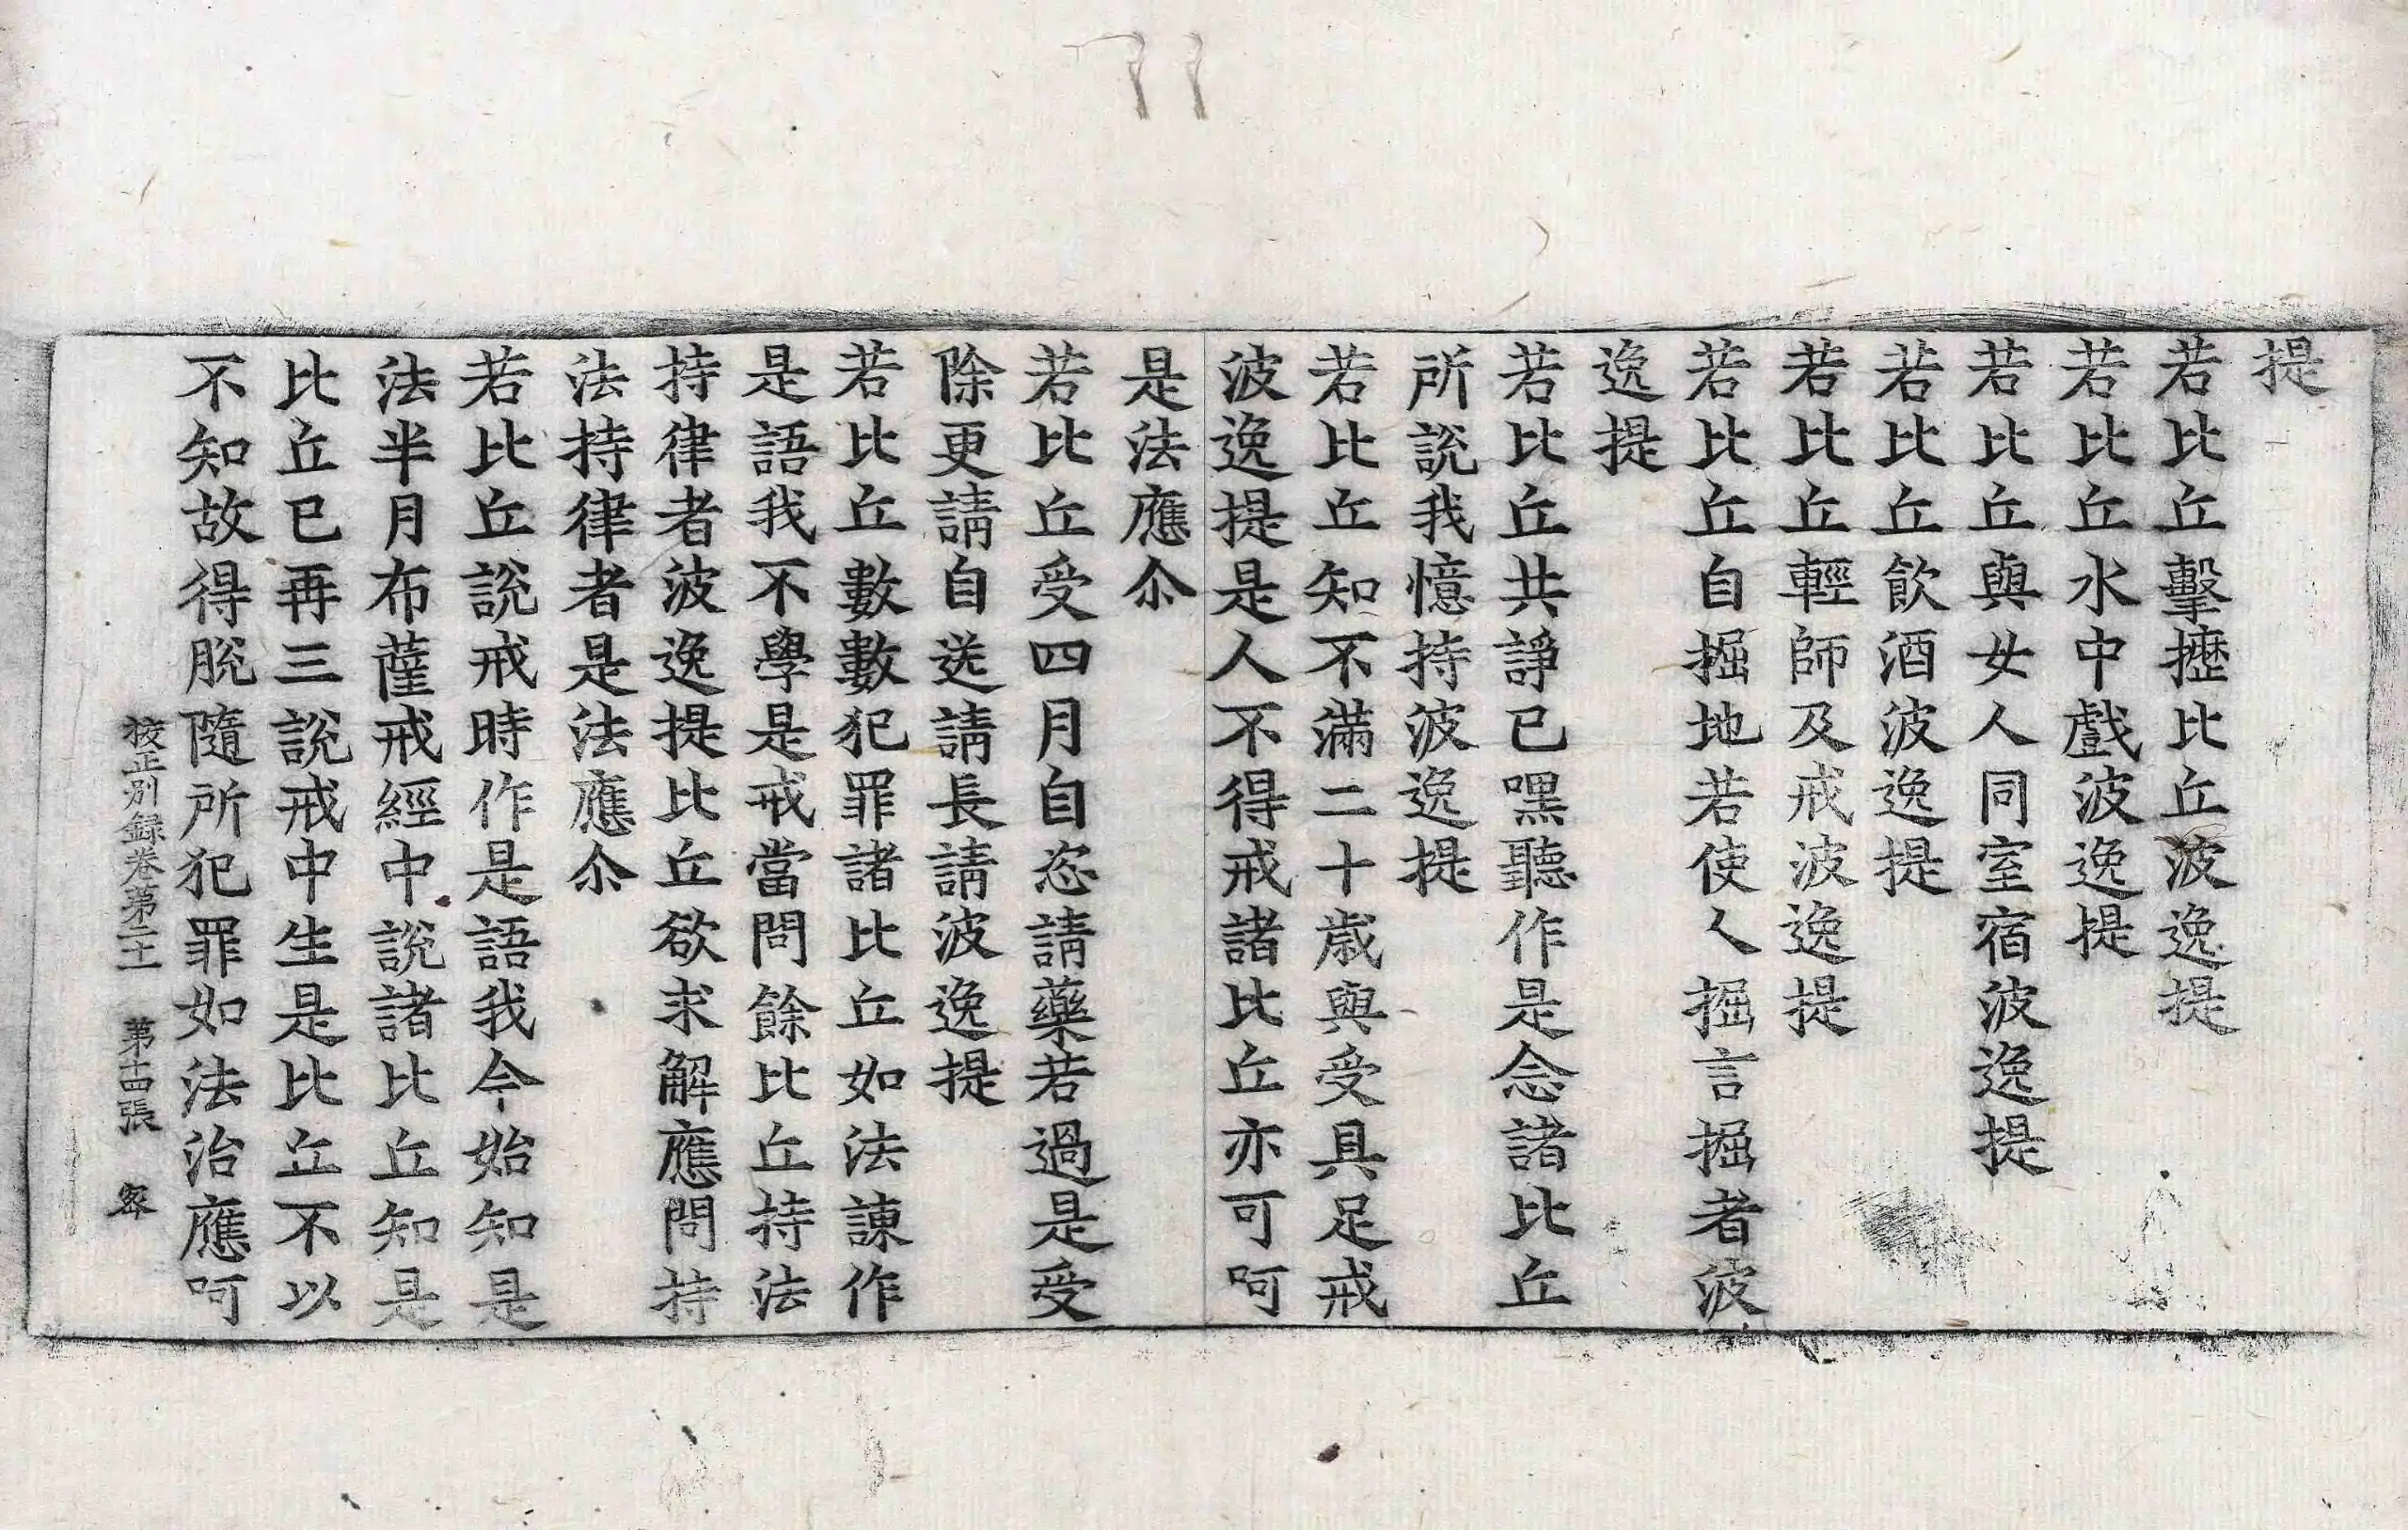 提
若比丘擊攊比丘波逸提
若比丘水中戲波逸提
若比丘與女人同室宿波逸提
若比丘飮酒波逸提
若比丘輕師及戒波逸提
若比丘自掘地若使人掘言掘者波
逸提
若比丘共諍已嘿聽作是念諸比丘
所說我憶持波逸提
若比丘知不滿二十歲與受具足戒
波逸提是人不得戒諸比丘亦可呵
是法應尒
若比丘受四月自恣請藥若過是受
除更請自送請長請波逸提
若比丘數數犯罪諸比丘如法諫作
是語我不學是戒當問餘比丘持法
持律者波逸提比丘欲求解應問持
法持律者是法應尒
若比丘說戒時作是語我今始知是
法半月布薩戒經中說諸比丘知是
比丘已再三說戒中生是比丘不以
不知故得脫隨所犯罪如法治應呵
校正別録卷第二十一　第十四張　宻